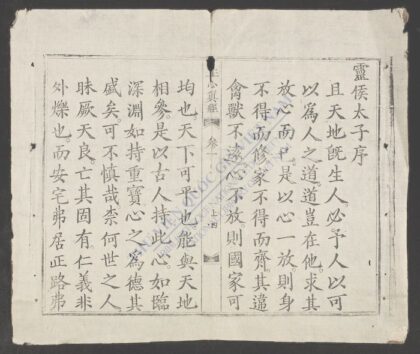 靈侯太子序
且天地旣生人必予人以可
以爲人之道道豈在他求其
放心而已是以心一放則身
不得而修家不得而齊其違
禽獸不遠心不放則國家可
心眞經 叅 上四
均也天下可平也能與天地
相參是以古人持此心如臨
深淵如持重寶心之爲德其
盛矣可不慎哉柰何世之人
昧厥天良亡其固有仁義非
外爍也而安宅弗居正路弗